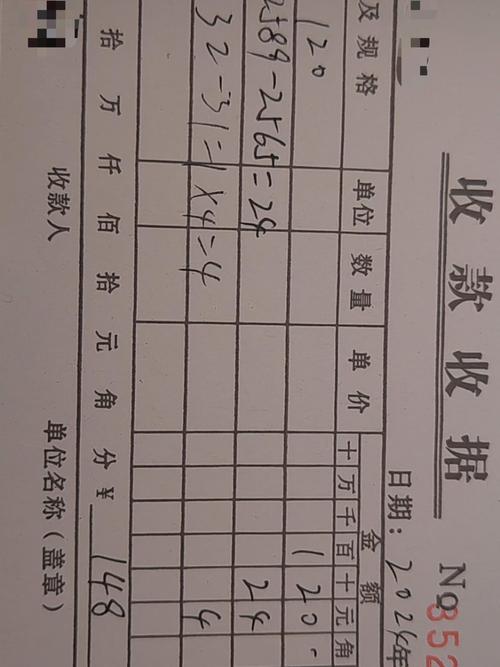 收款收据
No 352
日期: 2024年
及规格 单位 数量 单价 金额
十 万 千 百 十 元 角
120 1 2 0 -
2589-2565=24 2 4
32-31=1×4=4 4
拾 万 仟 佰 拾 元 角 分 ¥ 148
收款人 单位名称(盖章)